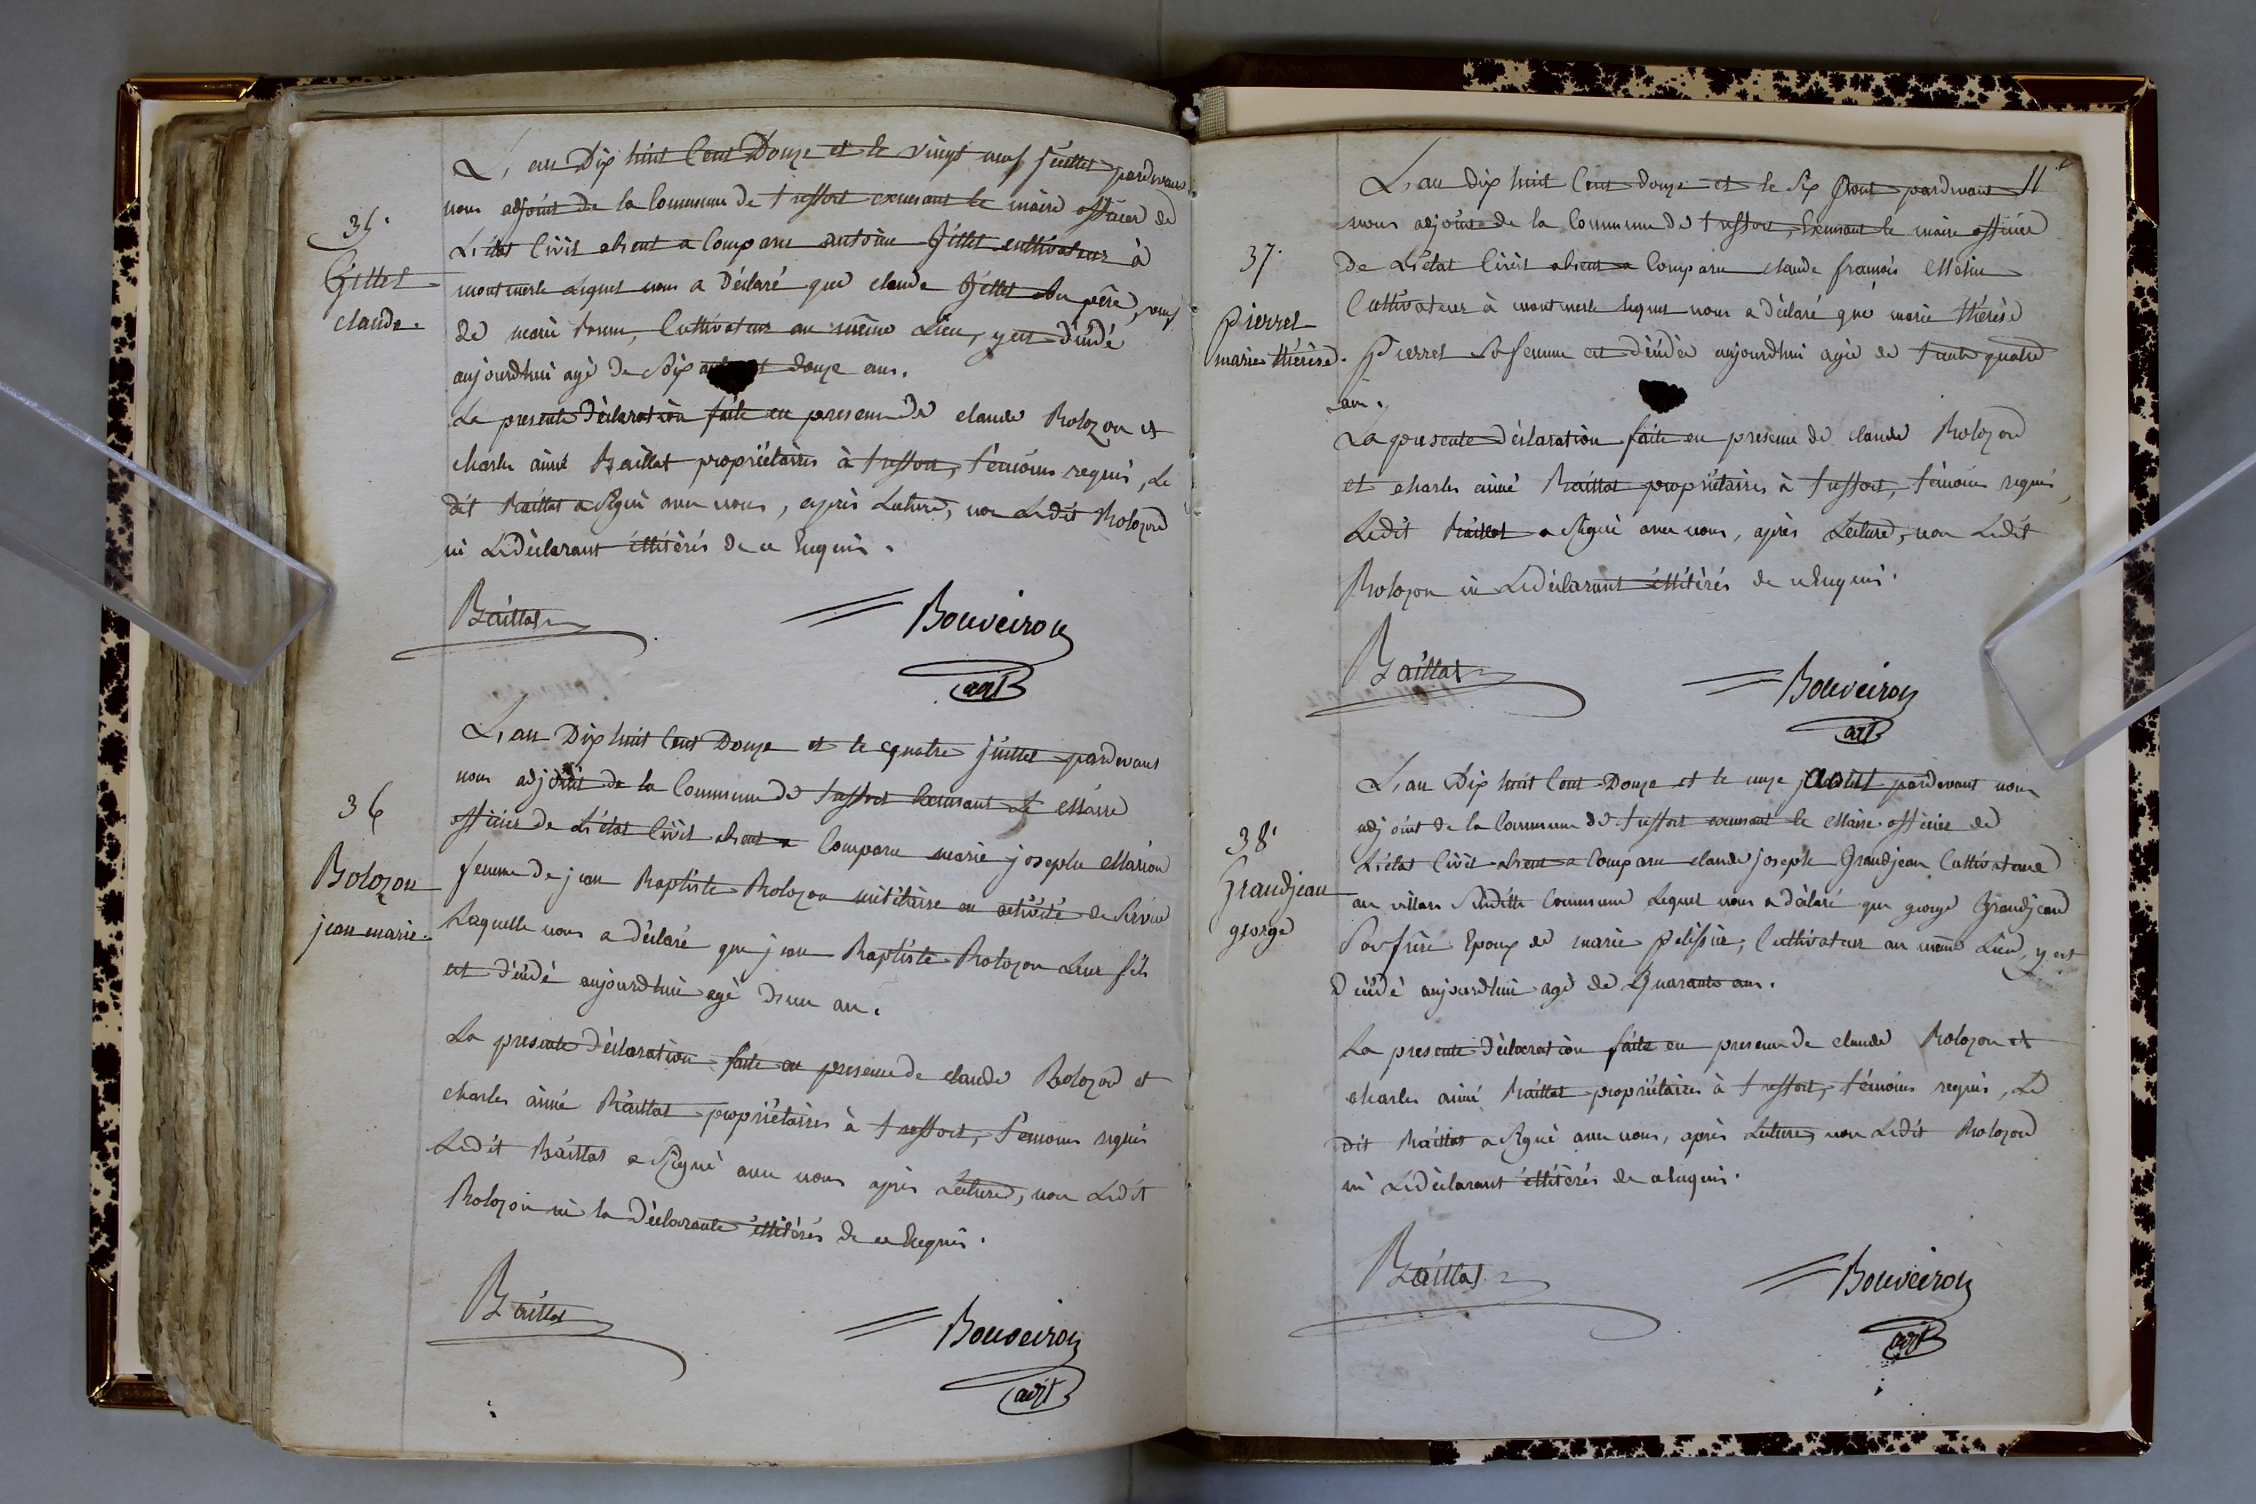 35.
Gillet
claude.
L'an Dix huit Cent Douze et le vingt neuf juillet pardevant
nous adjoint de la Commune de treffort exerçant le maire officier de
L'état Civil absent a Comparu antoine Gillet cultivateur à
montmerle Lequel nous a déclaré que claude Gillet son père, veuf
de marie, Cultivateur au même Lieu, y est dédédé
aujourdhui agé de Soixante et douze ans.
La presente déclaration faite en presence de claude Bolozon et
charles aimé Baillat propriétaires à treffort, témoins requis, Le
dit Baillat a Signé avec nous, après Lecture, non Ledit Bolozon
ni Ledéclarant illitérés de ce Enquis.
Baillat
Bouveiron
adjt
36
Bolozon
jean marie.
L'an Dix huit Cent Douze et le quatre juillet pardevant
nous adjoint de la Commune de treffort Exerçant Le Maire
officier de L'état Civil absent a Comparu marie josephe Marion
femme de jean Baptiste Bolozon militaire en activité de Service
Laquelle nous a déclaré que jean Baptiste Bolozon Leur fils
est dédédé aujourdhui agé D'un an.
La presente déclaration faite en presence de claude Bolozon et
charles aimé Baillat propriétaires à treffort, témoins requis
Ledit Baillat a Signé avec nous après Lecture, non Ledit
Bolozon ni la Déclarante illitérés de ce Enquis.
Baillat
Bouveiron
adjt
11
37.
Pierrel
marie thérèse.
L'an dix huit Cent douze et le Six Aout pardevant
nous adjoint de la Commune de treffort, Exerçant le maire officier
de L'état Civil absent a Comparu claude françois Melin
Cultivateur à montmerle Lequel nous a déclaré que marie thérèse
Pierrel Sa femme est dédédée aujourdhui agée de trente quatre
ans.
La presente déclaration faite en presence de claude Bolozon
et charles aimé Baillat propriétaires à treffort, témoins requis,
Ledit Baillat a Signé avec nous, après Lecture, non Ledit
Bolozon ni Ledéclarant illitérés de ce Enquis.
Baillat
Bouveiron
adjt
38.
Grandjean
george
L'an Dix huit Cent Douze et le onze aout pardevant nous
adjoint de la Commune de treffort exerçant le Maire officier de
L'état Civil absent a Comparu claude joseph Grandjean Cultivateur
au villars Susditte Commune Lequel nous a déclaré que george Grandjean
Son frère Epoux de marie pelissier, Cultivateur au même Lieu, y est
Dédédé aujourdhui agé de Quarante ans.
La presente déclaration faite en presence de claude Bolozon et
charles aimé Baillat propriétaires à treffort, témoins requis, Le
dit Baillat a Signé avec nous, après Lecture, non Ledit Bolozon
ni Ledéclarant illitérés de ce Enquis.
Baillat
Bouveiron
adjt